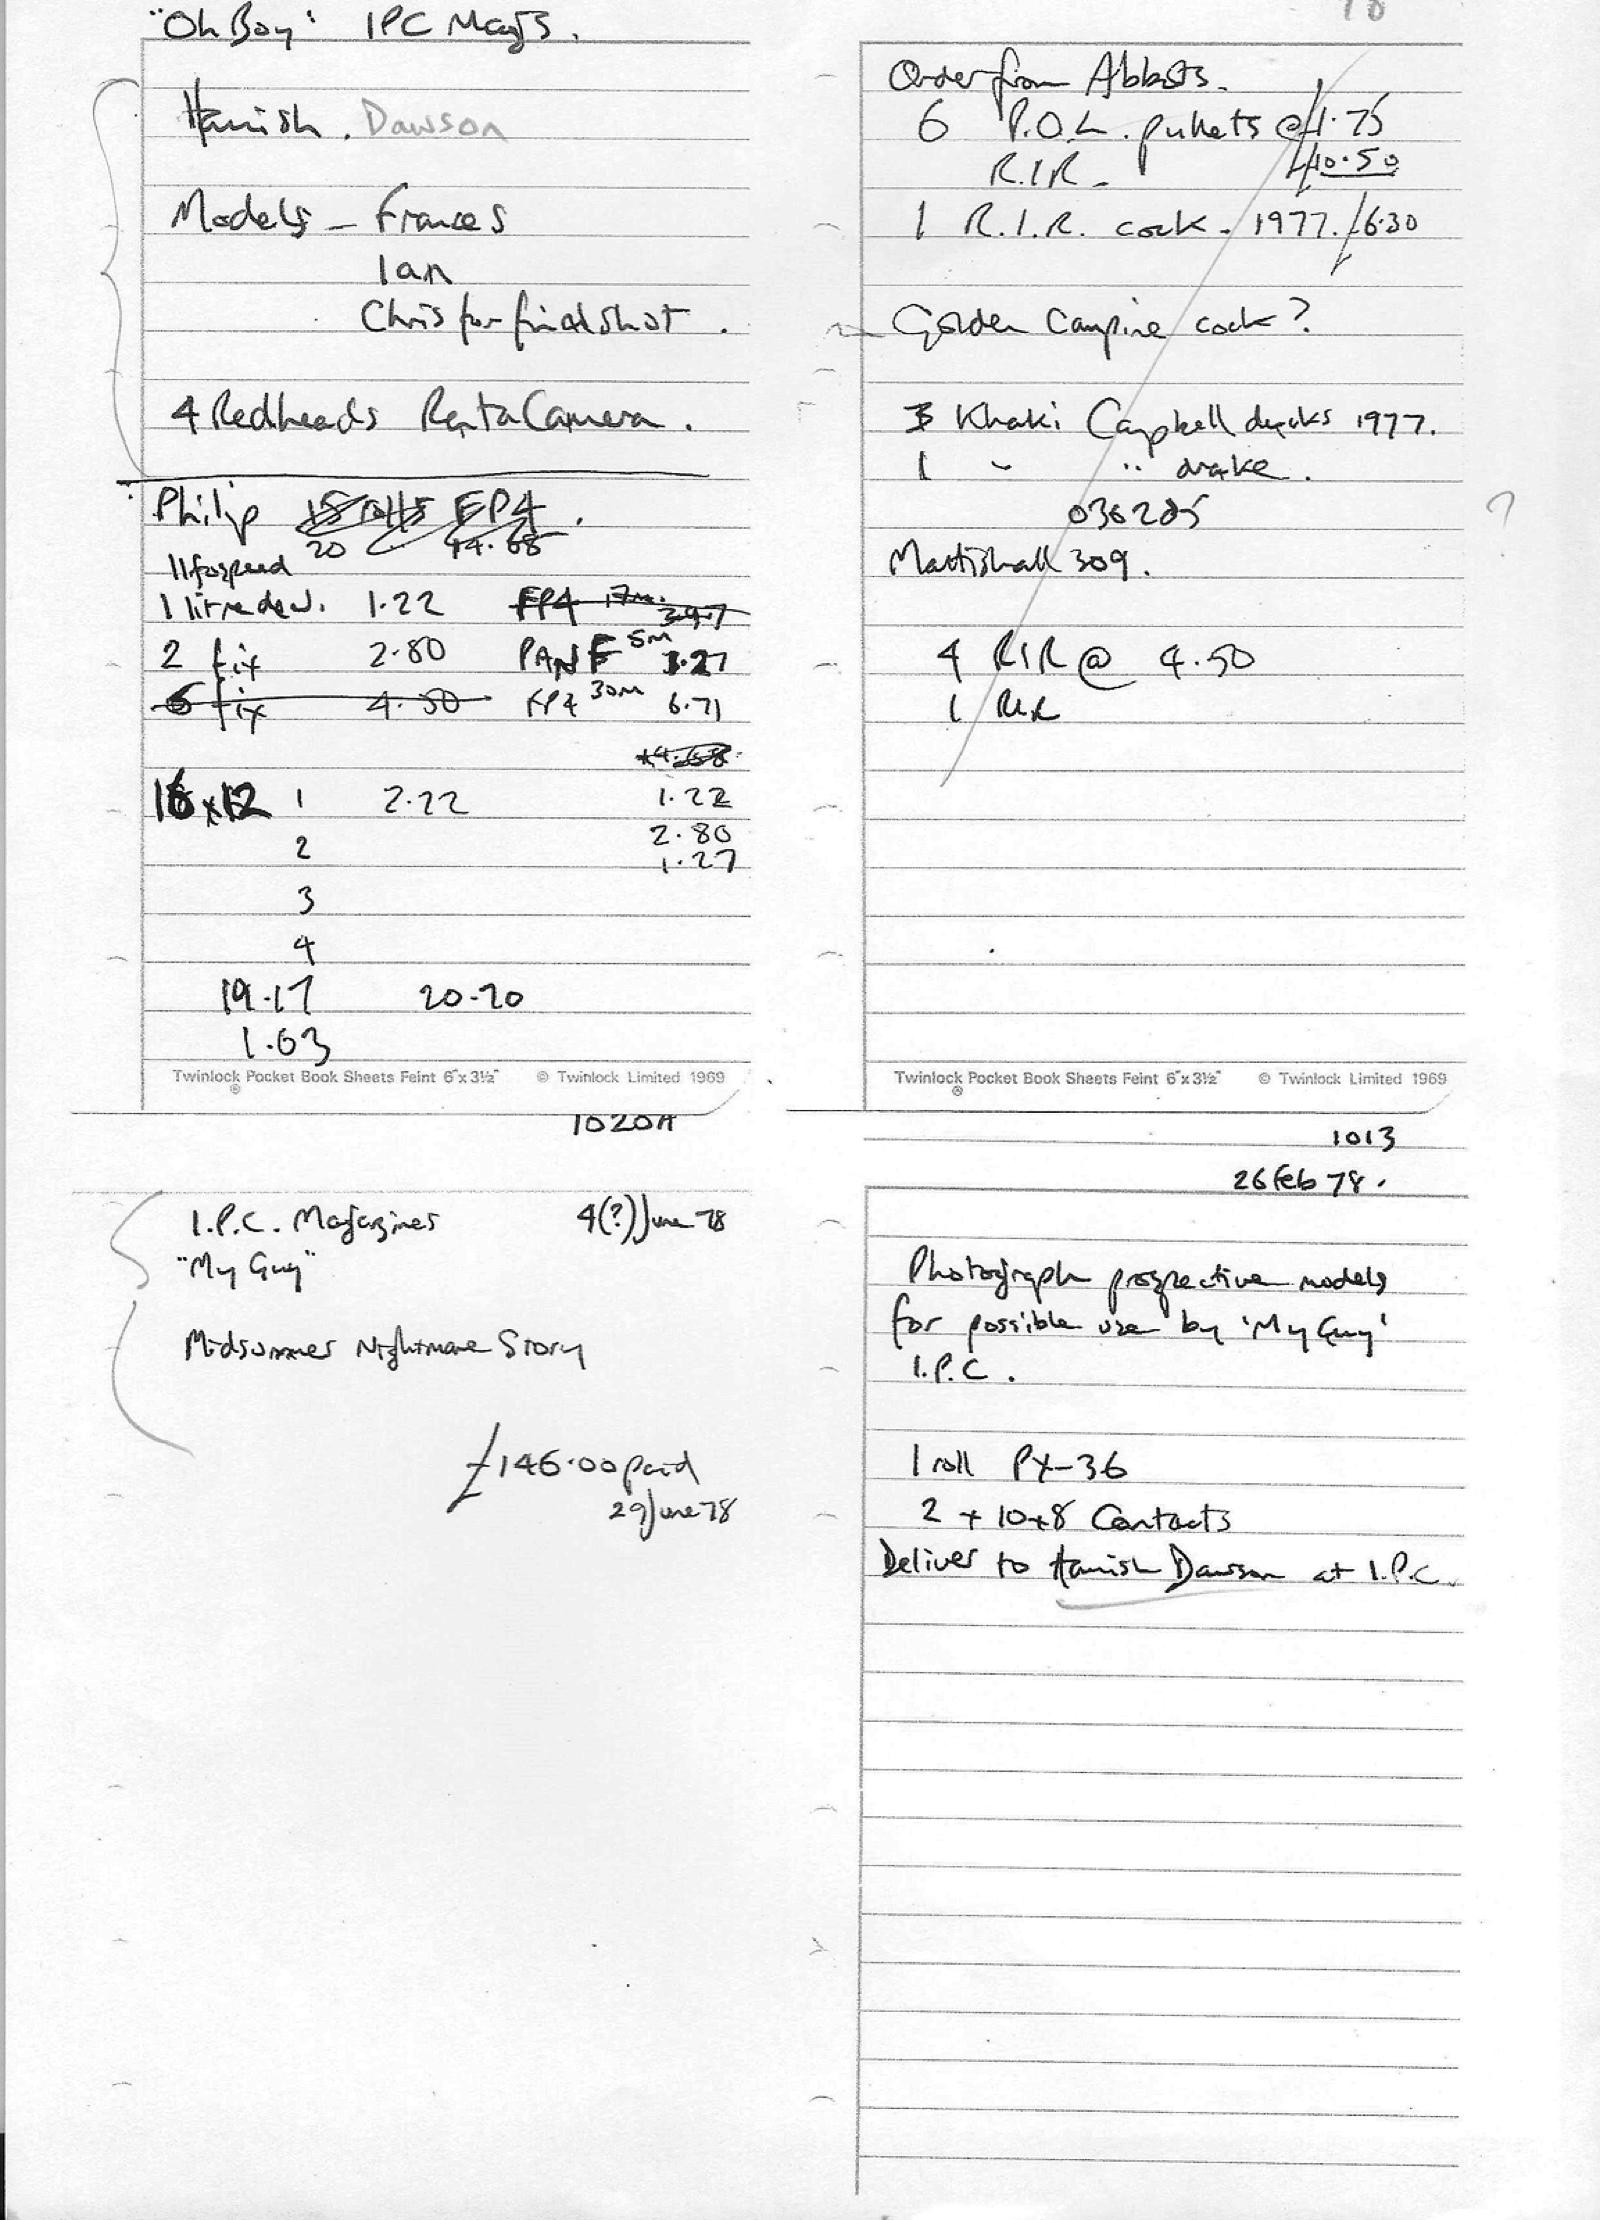 "Oh Boy" IPC Mags.
Hamish. Dawson
Models – Frances
Ian
Chris for final shot.
4 Redheads RentaCamera.
Philip 15 rolls FP4.
20 14.68
Ilfospeed
1 litre dev. 1.22 FP4 17m. 3.97
2 fix 2.80 PAN F 5m 1.27
6 fix 4.50 FP4 30m 6.71
14.68
16x12 1 2.22 1.22
2 2.80
1.27
3
4
19.17 20.20
1.03
Twinlock Pocket Book Sheets Feint 6"x3½" © Twinlock Limited 1969
®
78
Order from Abbots.
6 P.O.L. pullets @ £1.75
R.I.R – £10.50
1 R.I.R. cock – 1977. £6.30
Golden Campine cock?
3 Khaki Campbell ducks 1977.
1 " " drake.
036285
?
Mattishall 309.
4 RIR @ 4.50
1 RIR
Twinlock Pocket Book Sheets Feint 6"x3½" © Twinlock Limited 1969
®
1020A
I.P.C. Magazines 4(?) June 78
"My Guy"
Midsummer Nightmare Story
£146.00 paid
29 June 78
1013
26 Feb 78.
Photograph prospective models
for possible use by 'My Guy'
I.P.C.
1 roll PX-36
2 x 10x8 Contacts
Deliver to Hamish Dawson at I.P.C.